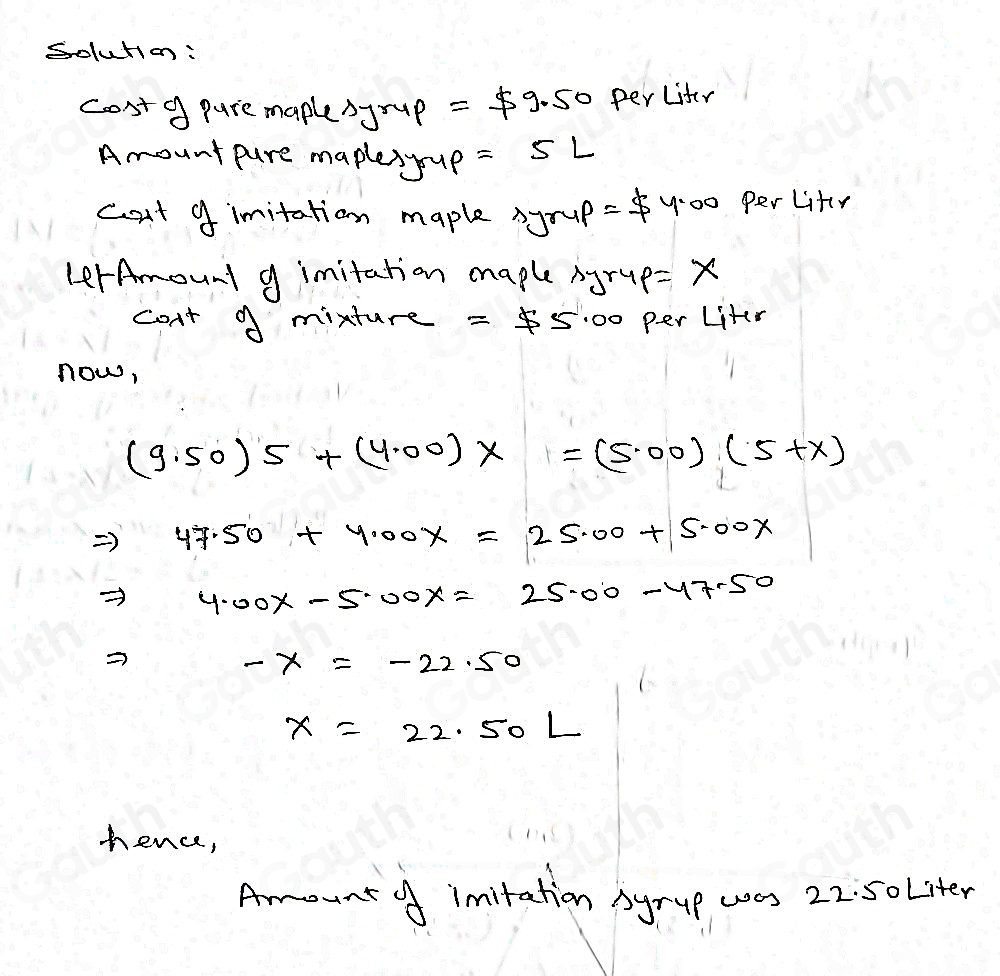 Solution:
Cost of pure maple syrup = $9.50 per Liter
Amount pure maple syrup = 5 L
Cost of imitation maple syrup = $4.00 per Liter
Let Amount of imitation maple syrup = x
Cost of mixture = $5.00 per Liter
now,
(9.50) 5 + (4.00) x = (5.00) (5+x)
⇒ 47.50 + 4.00x = 25.00 + 5.00x
⇒ 4.00x - 5.00x = 25.00 - 47.50
⇒ -x = -22.50
x = 22.50 L
hence,
Amount of imitation syrup was 22.50 Liter